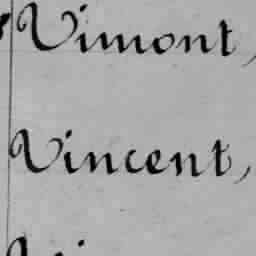 Vimont,
Vincent,